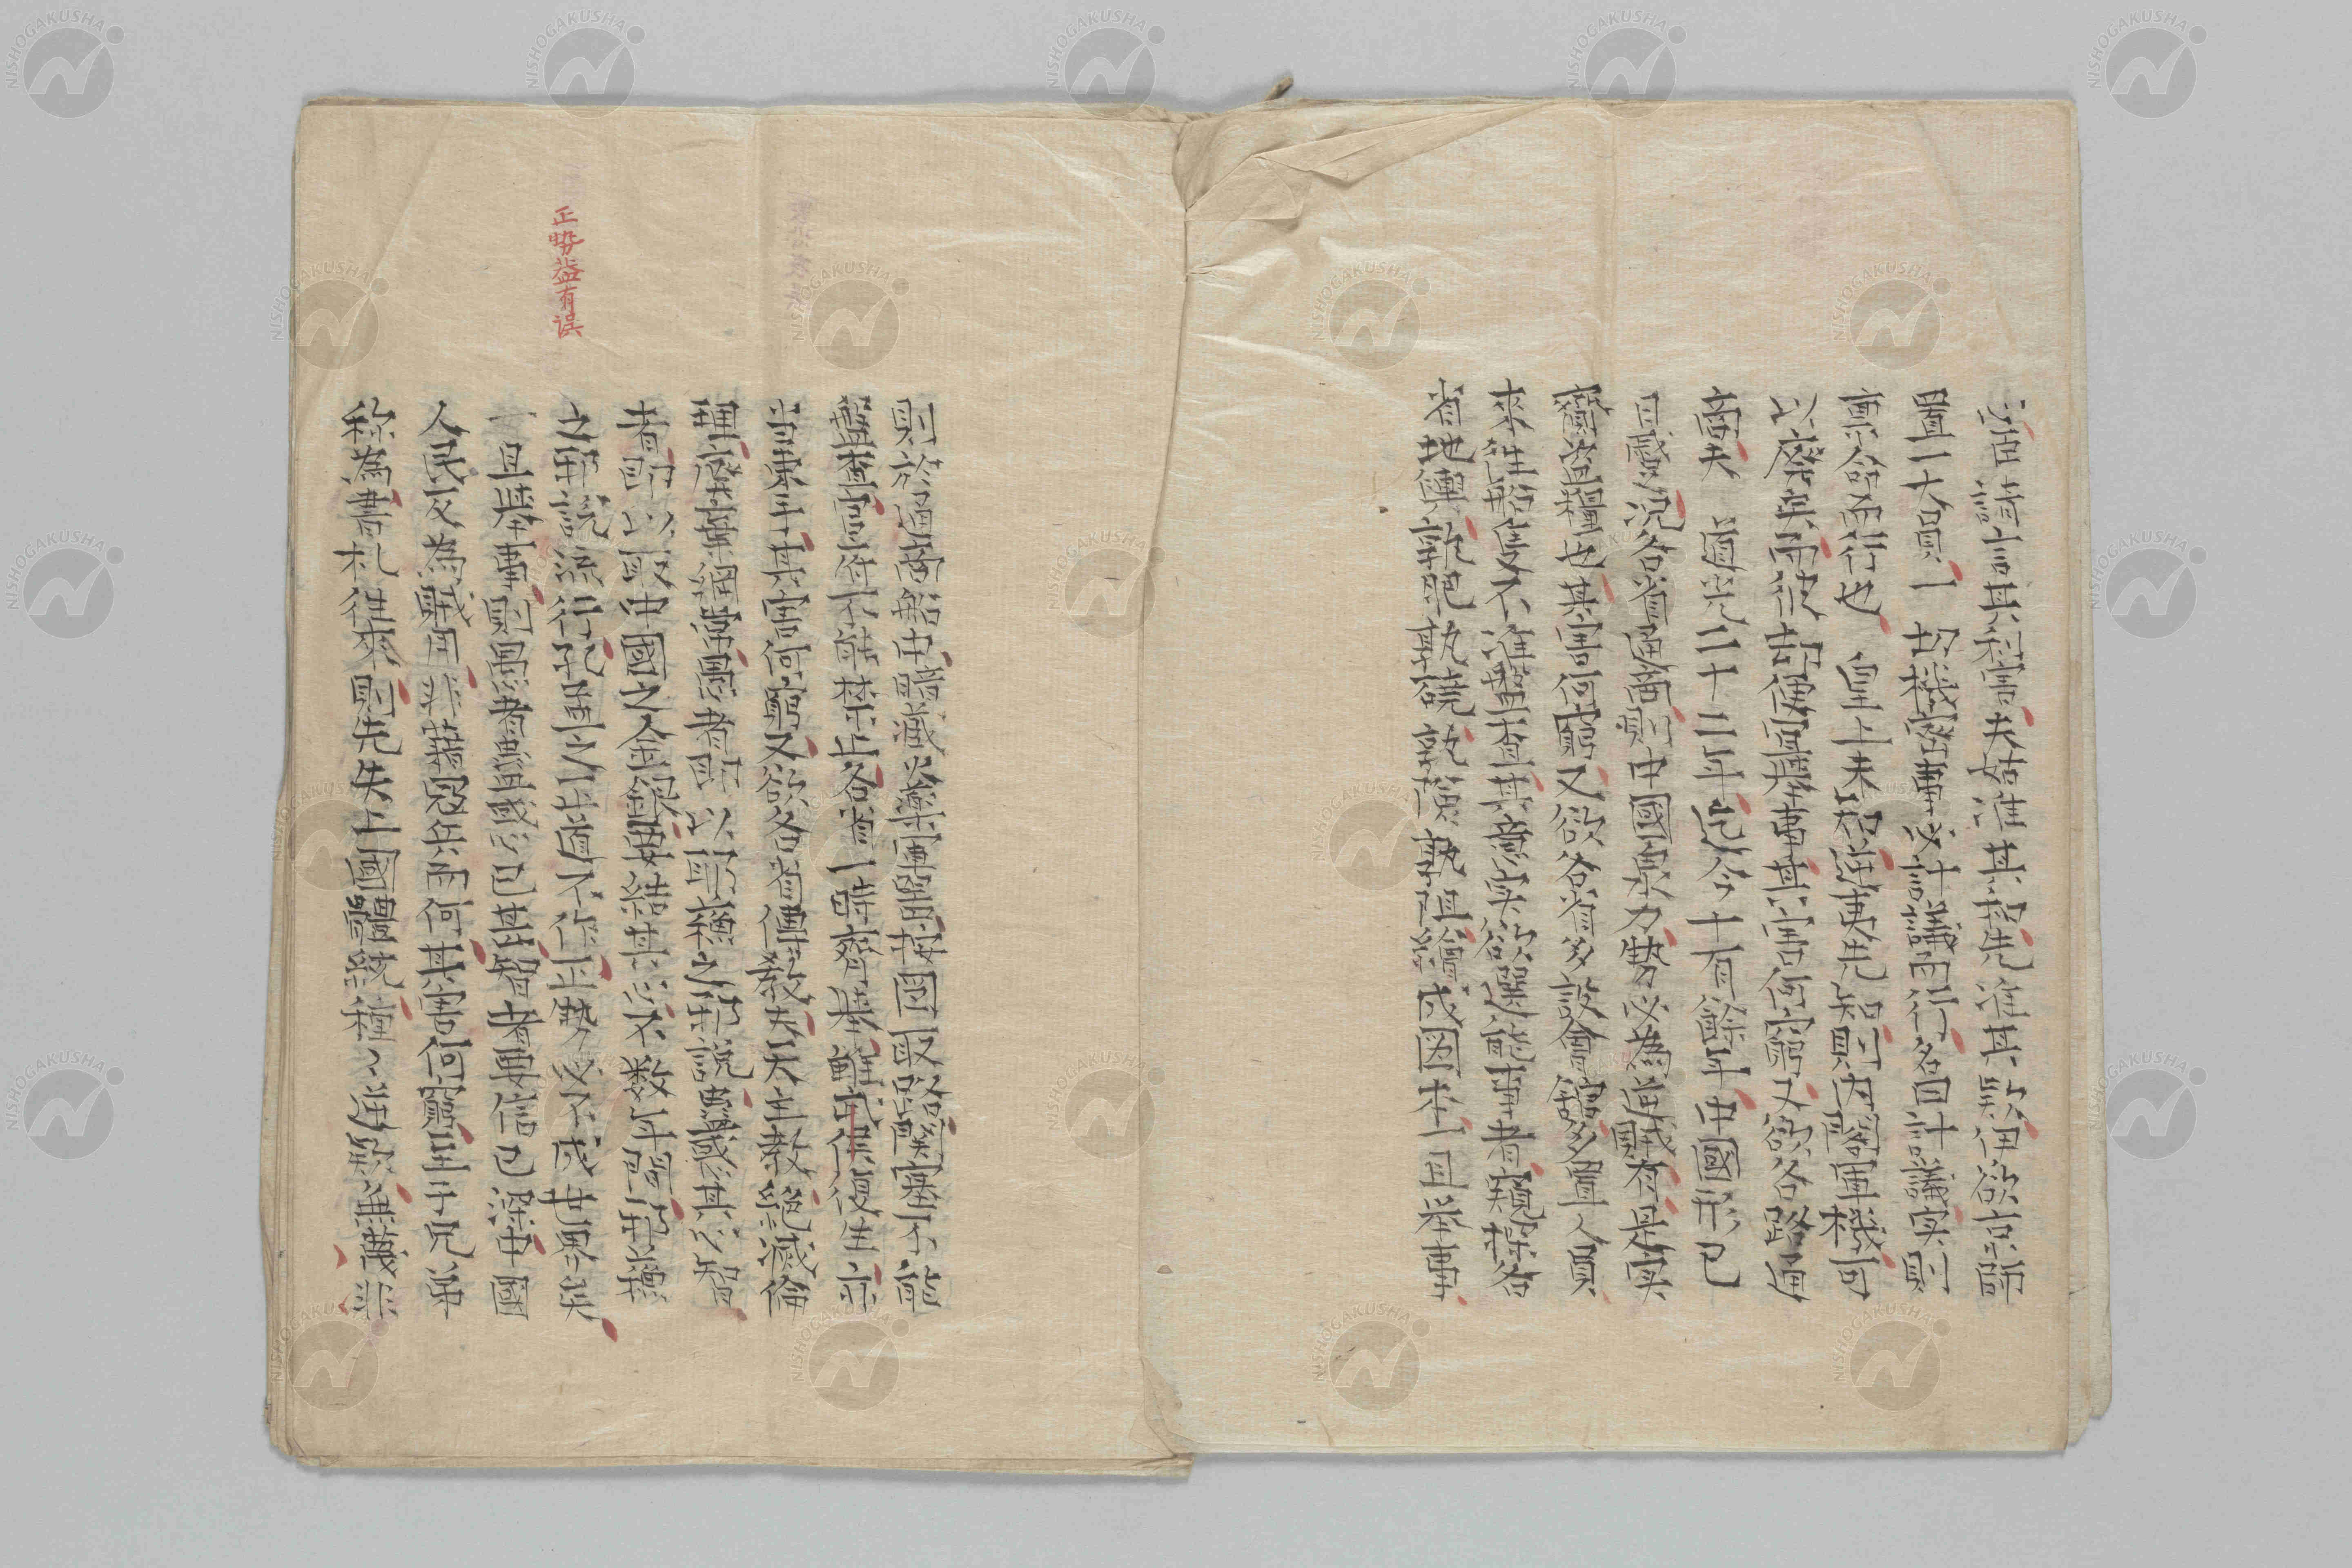 請言其利害夫始准其和先准其欵伊欲京師
置一大員一切機密事必計議而行名曰計議实則
禀命而行也 皇上未知逆夷先知則内閣軍機可
以廢矣而彼起便宜舉事其害何窮又欲各路通
商夫 道光二十二年迄今十有餘年中國形已
日蹙況各省通商則中國藥力勢必為逆賊有是实
齎盗糧也其害何窮又欲各省多設會館多置人員
來往船隻不准盤查其意实欲選能事者窺探各
省地輿孰肥孰磽孰險孰阻繪成図本一旦舉事
則於通商船中暗藏火藥軍器按図取路關塞不能
盤查官府不能禁止各省一時齊舉雖武侯復生亦
当束手其害何窮又欲各省傳教夫天主教絶滅倫
理廢棄綱常愚者即以耶穌之邪說蠱惑其心智
者即以取中國之金銀要結其心不数年間耶穌
之邪説流行孔孟之正道不作正勢必不成世界矣
一旦舉事則愚者蠱惑已甚智者要信已深中國
人民反為賊用非藉寇兵而何其害何窮至于兄弟
称為書札往來則先失上國體統種〻逆欵無議非
正勢益有误
NISHOGAKUSHA